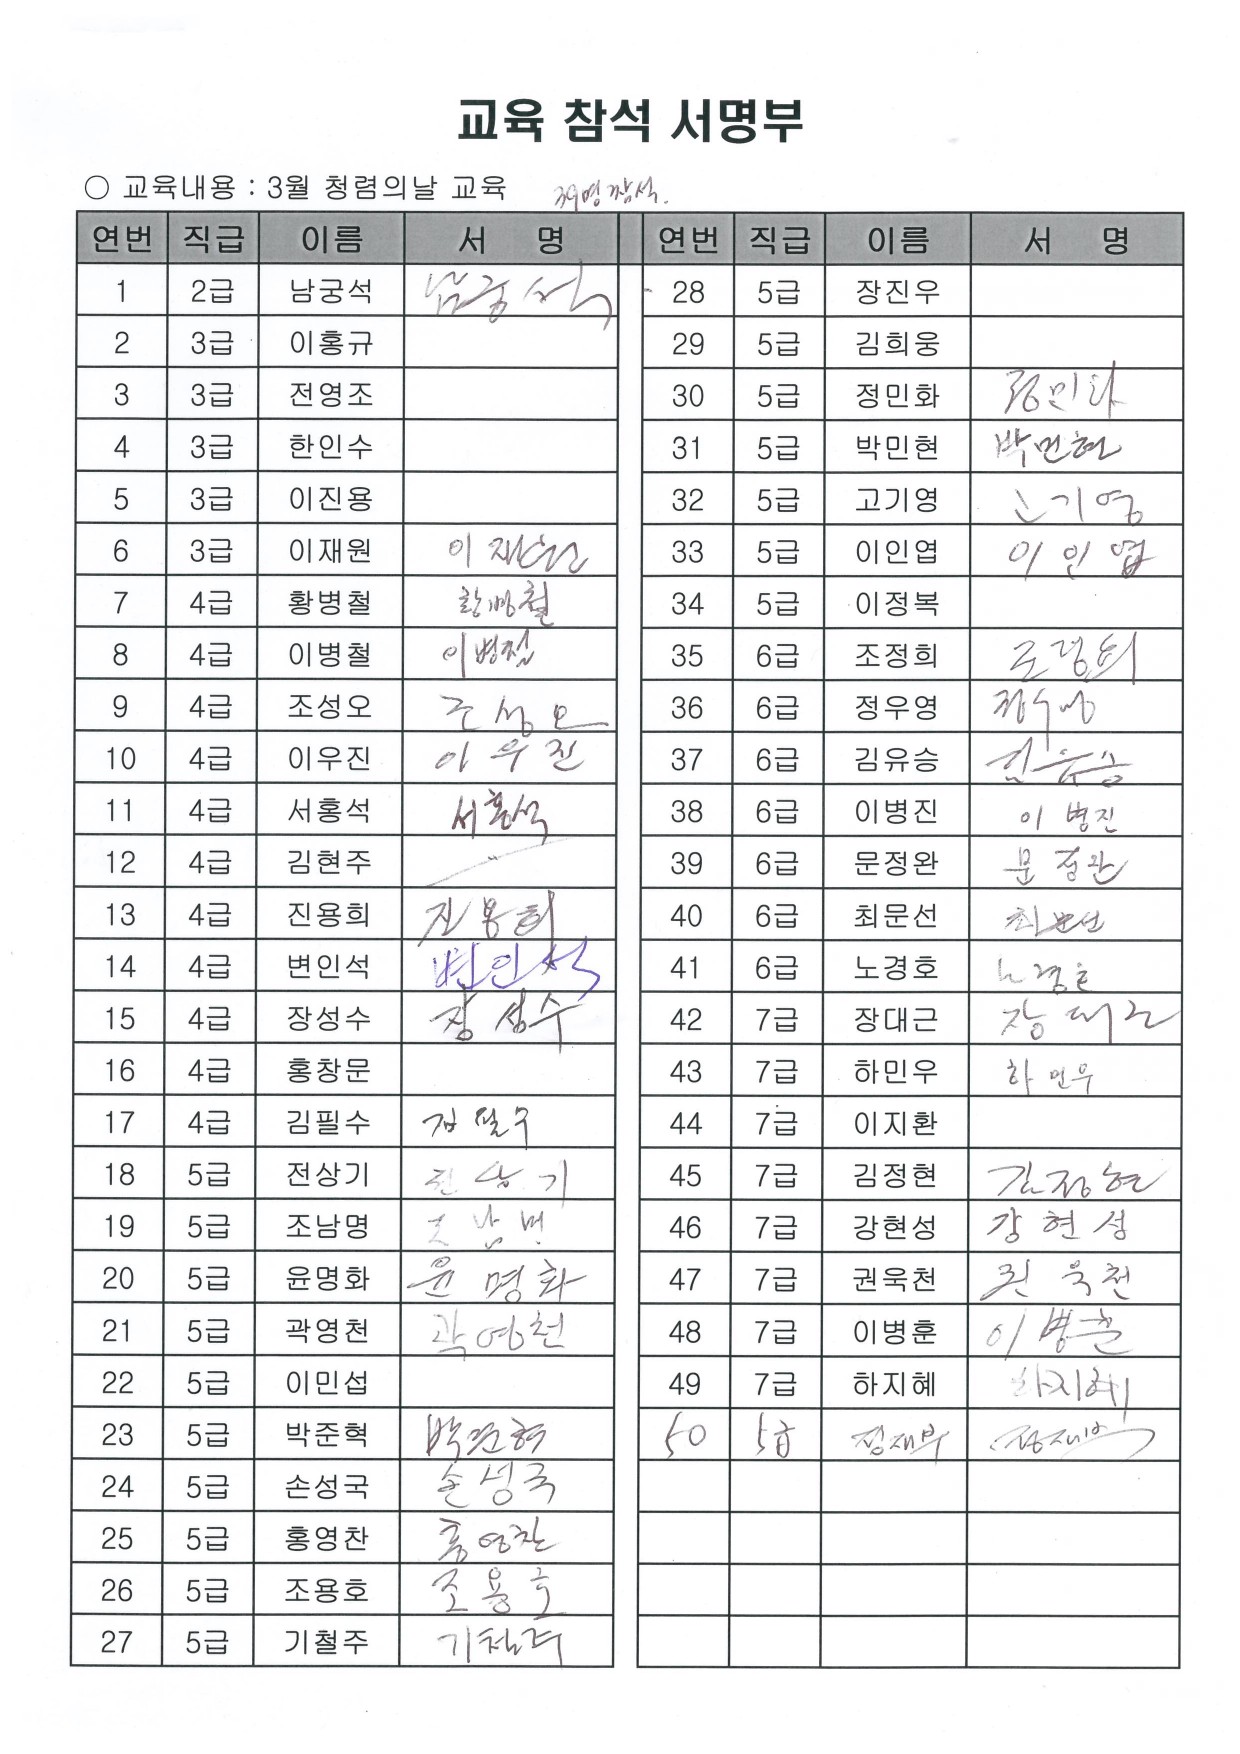 교육 참석 서명부
○ 교육내용 : 3월 청렴의날 교육 39명 참석.
연번 직급 이름 서 명 연번 직급 이름 서 명
1 2급 남궁석 남궁석 28 5급 장진우
2 3급 이홍규 29 5급 김희웅
3 3급 전영조 30 5급 정민화 정민화
4 3급 한인수 31 5급 박민현 박민현
5 3급 이진용 32 5급 고기영 고기영
6 3급 이재원 이재원 33 5급 이인엽 이인엽
7 4급 황병철 황병철 34 5급 이정복
8 4급 이병철 이병철 35 6급 조정희 조정희
9 4급 조성오 조성오 36 6급 정우영 정우영
10 4급 이우진 이우진 37 6급 김유승 김유승
11 4급 서홍석 서홍석 38 6급 이병진 이병진
12 4급 김현주 39 6급 문정완 문정완
13 4급 진용희 진용희 40 6급 최문선 최문선
14 4급 변인석 변인석 41 6급 노경호 노경호
15 4급 장성수 장성수 42 7급 장대근 장대근
16 4급 홍창문 43 7급 하민우 하민우
17 4급 김필수 김필수 44 7급 이지환
18 5급 전상기 전상기 45 7급 김정현 김정현
19 5급 조남명 조남명 46 7급 강현성 강현성
20 5급 윤명화 윤명화 47 7급 권욱천 권욱천
21 5급 곽영천 곽영천 48 7급 이병훈 이병훈
22 5급 이민섭 49 7급 하지혜 하지혜
23 5급 박준혁 박준혁 50 5급 정재부
24 5급 손성국 손성국
25 5급 홍영찬 홍영찬
26 5급 조용호 조용호
27 5급 기철주 기철주